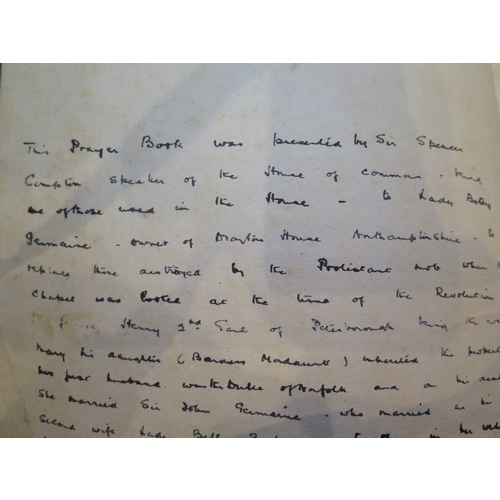 This Prayer Book was presented by Sir Spencer
Compton Speaker of the House of Commons - being
one of those used in the House - to Lady Betty
Germaine - owner of Drayton House Northamptonshire - to
replace those destroyed by the Protistant mob when
Chapel was looted at the time of the Revolution
Henry 2nd Earl of Peterborough being the
Mary his daughter (Baroness Mordaunt) inherited the
her first husband was the Duke of Norfolk and on his
She married Sir John Germaine - who married as his
Second wife Lady Betty in her